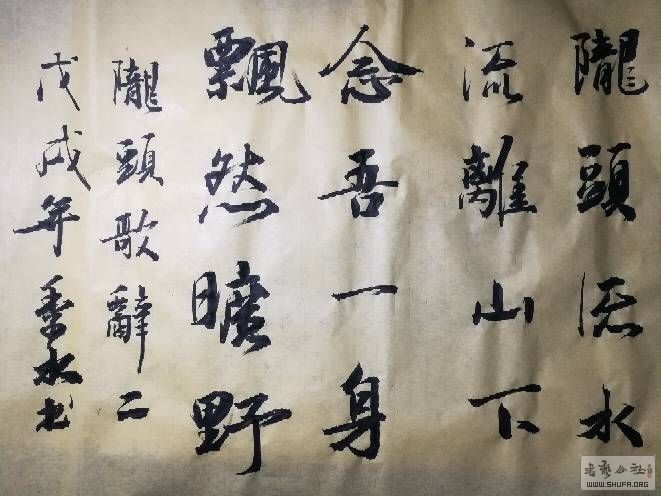 隴頭流水
流離山下
念吾一身
飄然曠野
隴頭歌辭二
戊戌年水书
书艺公社
WWW.SHUFA.ORG